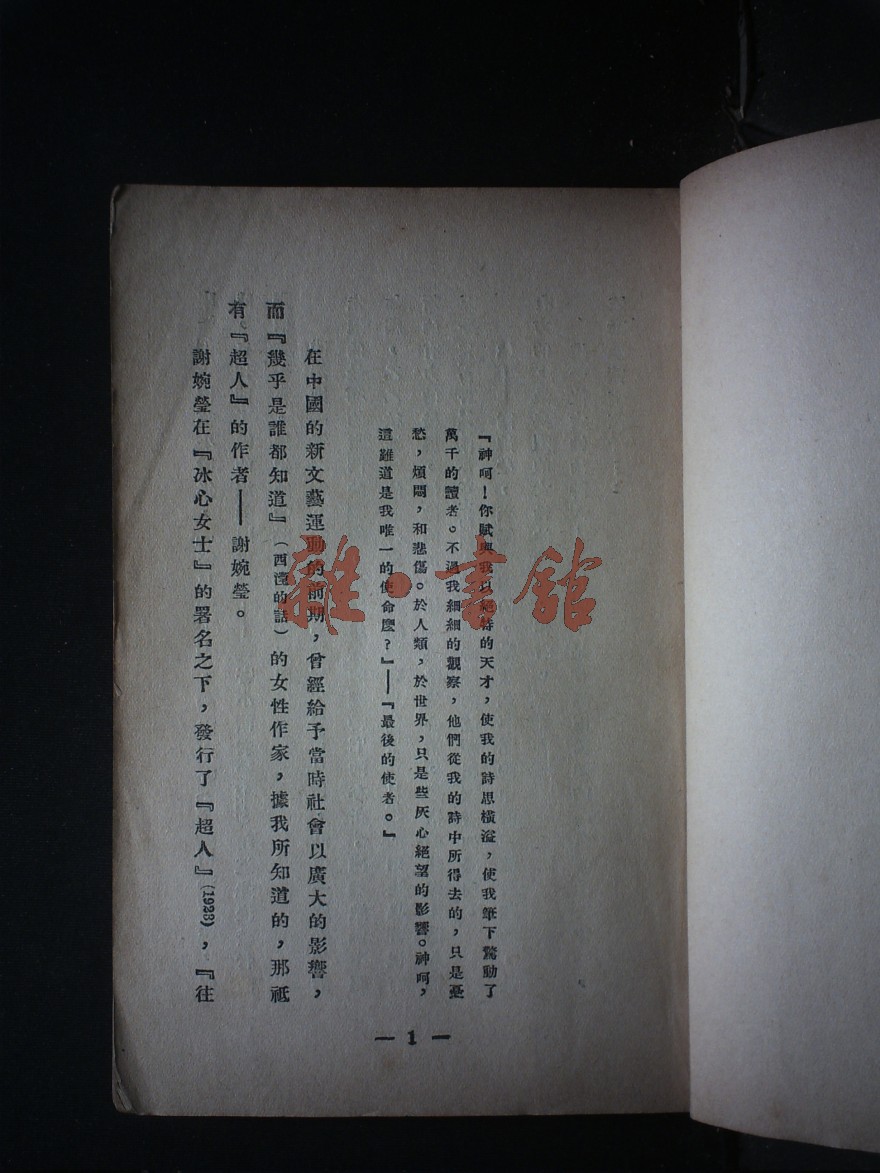 『神呵!你賦與我以絕特的天才,使我的詩思橫溢,使我筆下驚動了
萬千的讀者。不過我細細的觀察,他們從我的詩中所得去的,只是憂
愁,煩悶,和悲傷。於人類,於世界,只是些灰心絕望的影響。神呵,
這難道是我唯一的使命麼?』——『最後的使者。』
在中國的新文藝運動的前期,曾經給予當時社會以廣大的影響,
而『幾乎是誰都知道』(西瀅的話)的女性作家,據我所知道的,那祗
有『超人』的作者——謝婉瑩。
謝婉瑩在『冰心女士』的署名之下,發行了『超人』(1923),『往
— 1 —
雜·書館